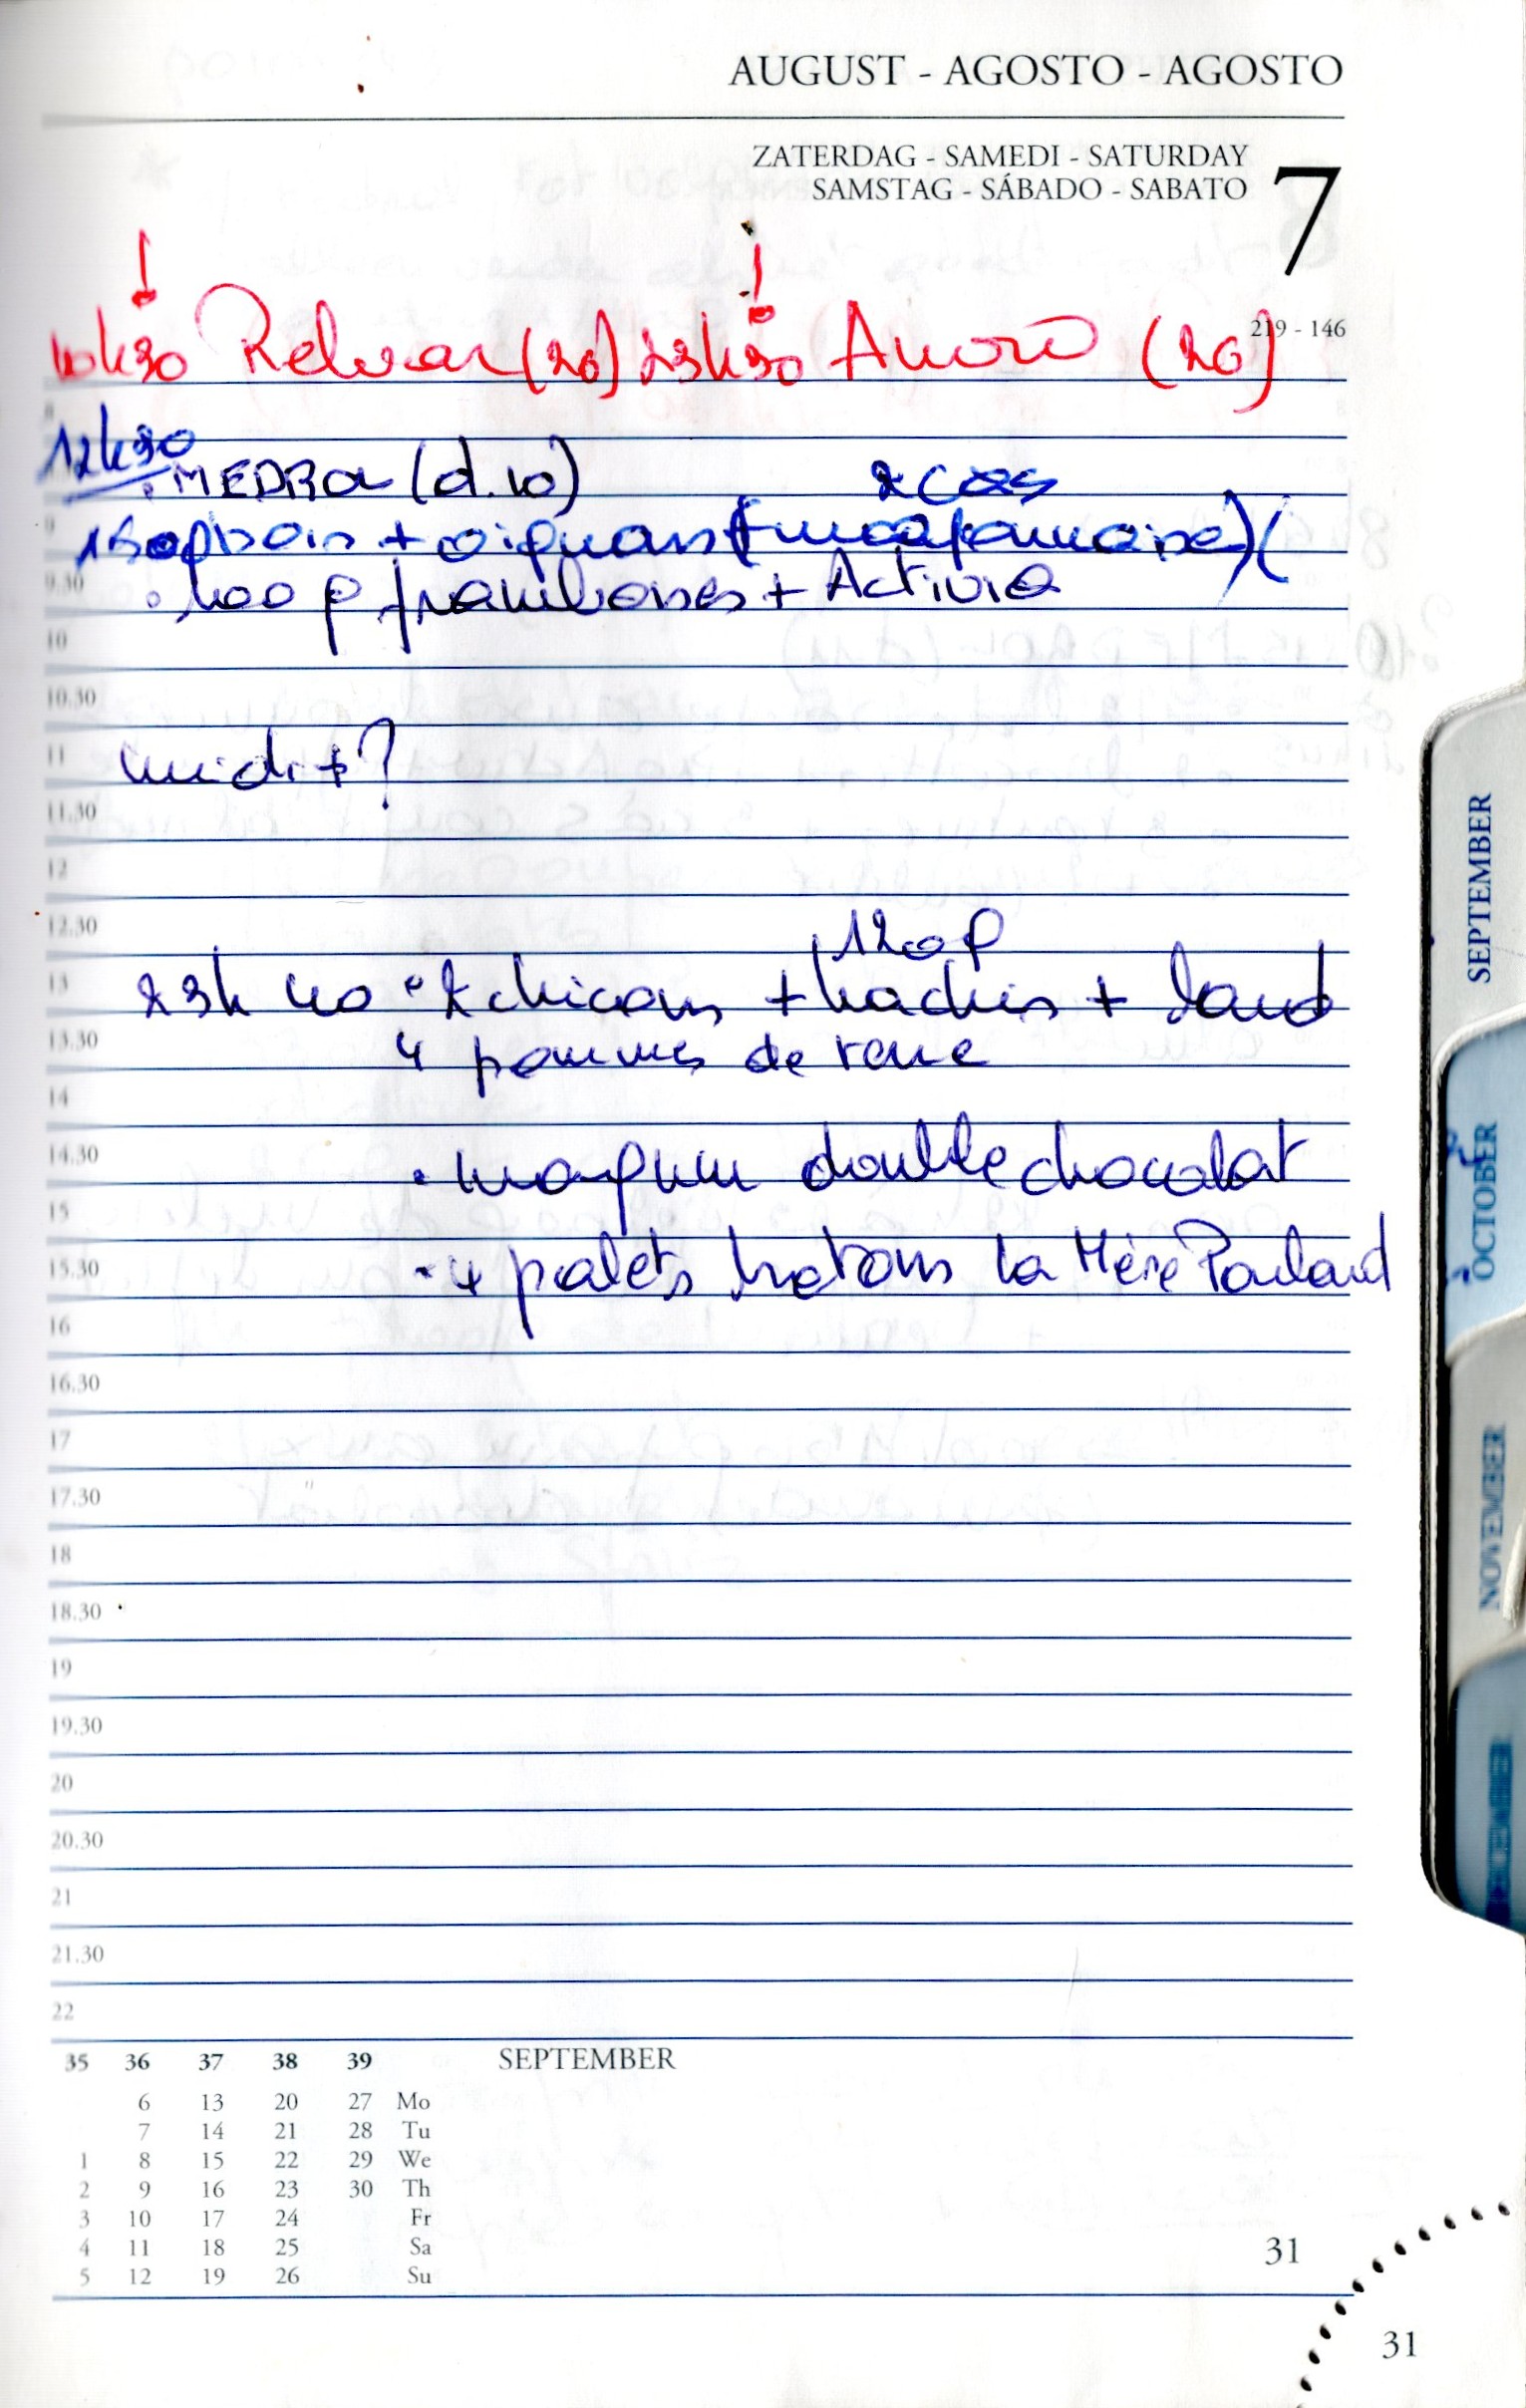 AUGUST - AGOSTO - AGOSTO
ZATERDAG - SAMEDI - SATURDAY
SAMSTAG - SÁBADO - SABATO
7
219 - 146
10h30 Relvar (20) 23h30 Anoro (20)
12h30
. MEDROL (d.10)
2 CàS
150g pois + oignons (
. 100 g framboises + Activia
9.30
10
10.30
11 midi + ?
11.30
12
12.30
120g
13 23h 40 . 2 chicons + hachis + lard
13.30 4 pommes de terre
14
14.30 . magnum double chocolat
15
15.30 . 4 palets bretons la Mère Poulard
16
16.30
17
17.30
18
18.30
19
19.30
20
20.30
21
21.30
22
35 36 37 38 39 SEPTEMBER
6 13 20 27 Mo
7 14 21 28 Tu
1 8 15 22 29 We
2 9 16 23 30 Th
3 10 17 24 Fr
4 11 18 25 Sa
5 12 19 26 Su
31
31
SEPTEMBER
OCTOBER
NOVEMBER